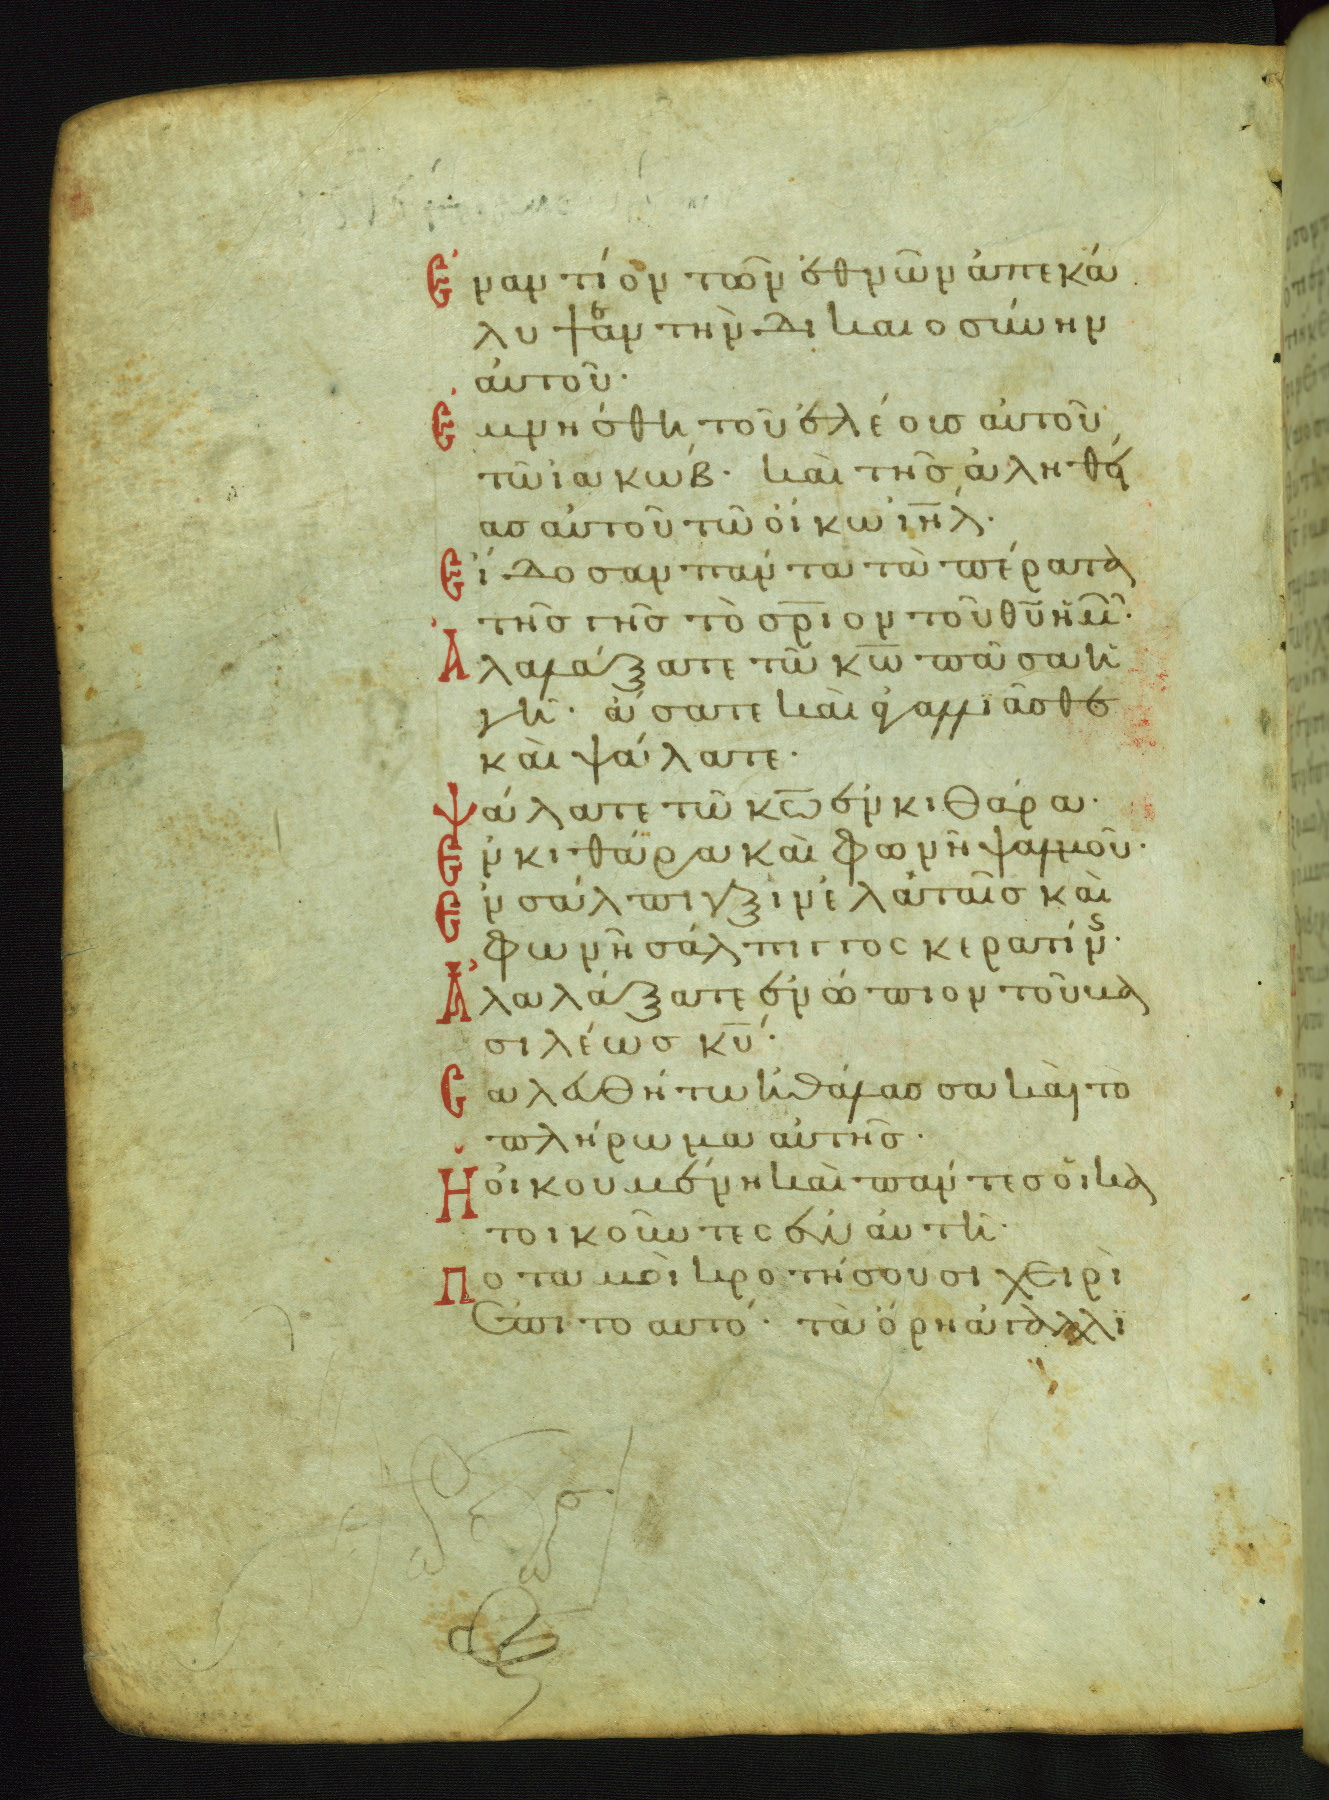 Ἐναντίον τῶν ἐθνῶν ἀπεκά
λυψαν τὴν δικαιοσύνην
αὐτοῦ·
Ἐμνήσθη τοῦ ἐλέους αὐτοῦ
τῶ ἰακώβ· καὶ τῆς ἀληθεί
ας αὐτοῦ τῶ οἴκω ἰηλ·
Εἴδοσαν πάντα τὰ πέρατα
τῆς γῆς τὸ σριον τοῦ θυ ἡμῶν·
Ἀλαλάξατε τῶ κω πᾶσα ἡ
γῆ· ἄσατε καὶ ἀγαλλιᾶσθε
καὶ ψάλατε·
Ψάλατε τῶ κω ἐν κιθάρα·
Ἐν κιθάρα καὶ φωνῆ ψαλμοῦ·
Ἐν σάλπιγξιν ἐλαταῖς καὶ
φωνῆ σάλπιγγος κερατίνης·
Ἀλαλάξατε ἐνώπιον τοῦ βα
σιλέως κυ·
Σαλευθήτω ἡ θάλασσα καὶ τὸ
πλήρωμα αὐτῆς·
Ἡ οἰκουμένη καὶ πάντες οἱ κα
τοικοῦντες ἐν αὐτῆ·
Ποταμοὶ κροτήσουσι χειρὶ
ἐπιτοαυτό· τὰ ὄρη ἀγαλλι